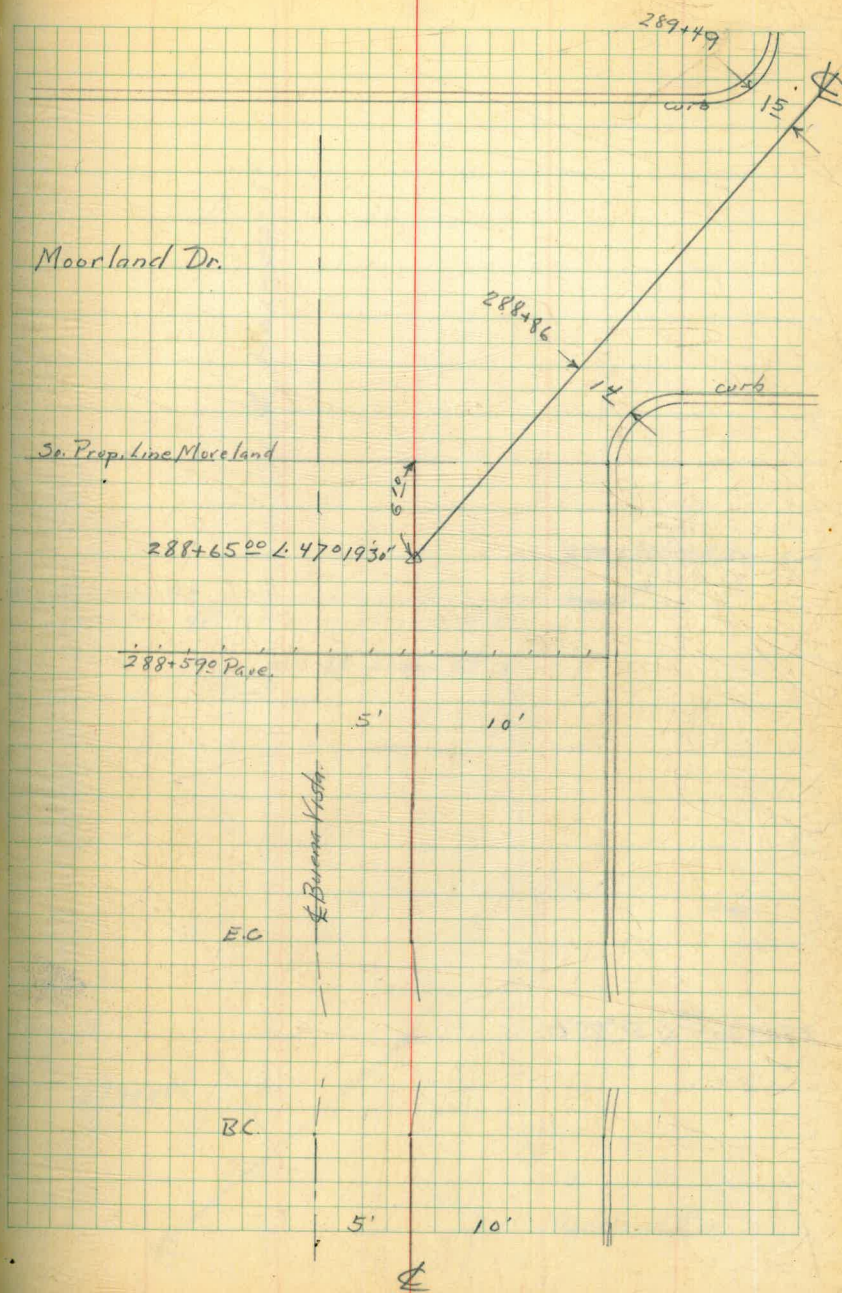 289+49
℄
curb
15
Moorland Dr.
288+86
14
curb
So. Prop. Line Moreland
6 10
288+65 00 L. 47°19'30"
288+59 0 Pave.
5' 10'
℄ Buena Vista
E.C
B.C.
5' 10'
℄